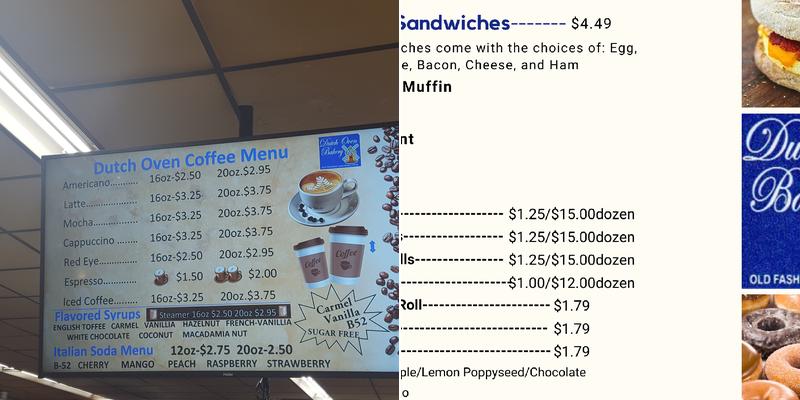 Dutch Oven Coffee Menu
Dutch Oven
Bakery
Americano........... 16oz-$2.50 20oz.$2.95
Latte................ 16oz-$3.25 20oz.$3.75
Mocha............... 16oz-$3.25 20oz.$3.75
Cappuccino ....... 16oz-$3.25 20oz.$3.75
Red Eye............. 16oz-$2.50 20oz.$2.95
Espresso............. $1.50 $2.00
Iced Coffee......... 16oz-$3.25 20oz.$3.75
Coffee
Coffee
Flavored Syrups Steamer 16oz $2.50 20oz $2.95
ENGLISH TOFFEE CARMEL VANILLIA HAZELNUT FRENCH-VANILLIA
WHITE CHOCOLATE COCONUT MACADAMIA NUT
Carmel
Vanilla
B52
SUGAR FREE
Italian Soda Menu 12oz-$2.75 20oz-2.50
B-52 CHERRY MANGO PEACH RASPBERRY STRAWBERRY
Sandwiches------- $4.49
ches come with the choices of: Egg,
e, Bacon, Cheese, and Ham
Muffin
nt
$1.25/$15.00dozen
s $1.25/$15.00dozen
lls $1.25/$15.00dozen
$1.00/$12.00dozen
Roll $1.79
$1.79
$1.79
ple/Lemon Poppyseed/Chocolate
o
Du
Ba
OLD FASH